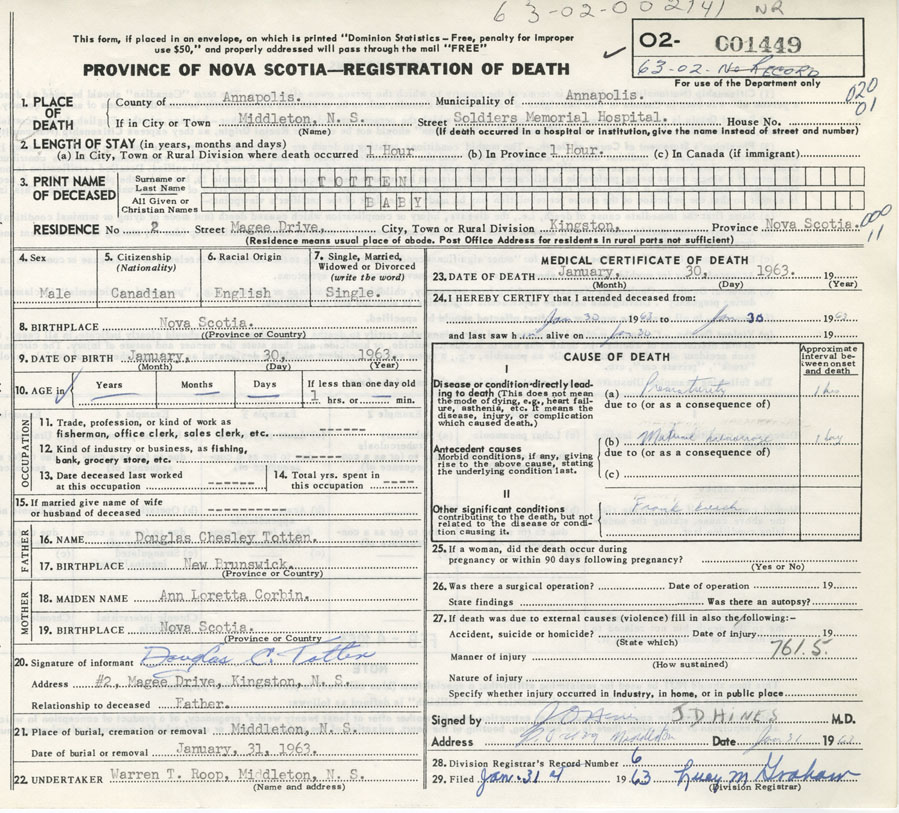 63-02-002141 NR
This form, if placed in an envelope, on which is printed "Dominion Statistics – Free, penalty for improper
use $50," and properly addressed will pass through the mail "FREE"
02- 001449
63-02- No RECORD
For use of the Department only
PROVINCE OF NOVA SCOTIA—REGISTRATION OF DEATH
020
01
1. PLACE OF DEATH
County of Annapolis. Municipality of Annapolis.
If in City or Town Middleton, N. S. Street Soldiers Memorial Hospital. House No.
(Name) (If death occurred in a hospital or institution, give the name instead of street and number)
2. LENGTH OF STAY (in years, months and days)
(a) In City, Town or Rural Division where death occurred 1 Hour (b) In Province 1 Hour. (c) In Canada (if immigrant)
3. PRINT NAME OF DECEASED
Surname or Last Name TOTTEN
All Given or Christian Names BABY
RESIDENCE No 2 Street Magee Drive, City, Town or Rural Division Kingston, Province Nova Scotia.
000
11
(Residence means usual place of abode. Post Office Address for residents in rural parts not sufficient)
4. Sex
Male
5. Citizenship (Nationality)
Canadian
6. Racial Origin
English
7. Single, Married, Widowed or Divorced (write the word)
Single.
8. BIRTHPLACE Nova Scotia.
((Province or Country)
9. DATE OF BIRTH January, 30, 1963.
(Month) (Day) (Year)
10. AGE in Years Months Days If less than one day old
1 hrs. or min.
OCCUPATION
11. Trade, profession, or kind of work as
fisherman, office clerk, sales clerk, etc. ------
12. Kind of industry or business, as fishing,
bank, grocery store, etc. ------
13. Date deceased last worked at this occupation ------
14. Total yrs. spent in this occupation -----
15. If married give name of wife
or husband of deceased ----------
FATHER
16. NAME Douglas Chesley Totten.
17. BIRTHPLACE New Brunswick.
(Province or Country)
MOTHER
18. MAIDEN NAME Ann Loretta Corbin.
19. BIRTHPLACE Nova Scotia.
(Province or Country
20. Signature of informant Douglas C. Totten
Address #2, Magee Drive, Kingston, N. S.
Relationship to deceased Father.
21. Place of burial, cremation or removal Middleton, N. S.
Date of burial or removal January, 31, 1963.
22. UNDERTAKER Warren T. Roop, Middleton, N. S.
(Name and address)
MEDICAL CERTIFICATE OF DEATH
23. DATE OF DEATH January, 30, 1963. 19
(Month) (Day) (Year)
24. I HEREBY CERTIFY that I attended deceased from:
Jan 30 1963 to Jan 30 1963
and last saw h alive on Jan 30 19
CAUSE OF DEATH
Approximate interval between onset and death
I
Disease or condition directly leading to death (This does not mean the mode of dying, e.g., heart failure, asthenia, etc. It means the disease, injury, or complication which caused death.)
(a) Prematurity 1 hr
due to (or as a consequence of)
Antecedent causes
Morbid conditions, if any, giving rise to the above cause, stating the underlying condition last.
(b) 1 day
due to (or as a consequence of)
(c)
II
Other significant conditions
contributing to the death, but not related to the disease or condition causing it.
Frank breech
25. If a woman, did the death occur during
pregnancy or within 90 days following pregnancy?
(Yes or No)
26. Was there a surgical operation? Date of operation 19
State findings Was there an autopsy?
27. If death was due to external causes (violence) fill in also the following:–
Accident, suicide or homicide? Date of injury 19
(State which)
761.5.
Manner of injury
(How sustained)
Nature of injury
Specify whether injury occurred in industry, in home, or in public place
Signed by J.D. HINES M.D.
Address Middleton Date Jan 31 1963
28. Division Registrar's Record Number 6
29. Filed Jan. 31 1963 Lucy M Graham
(Division Registrar)